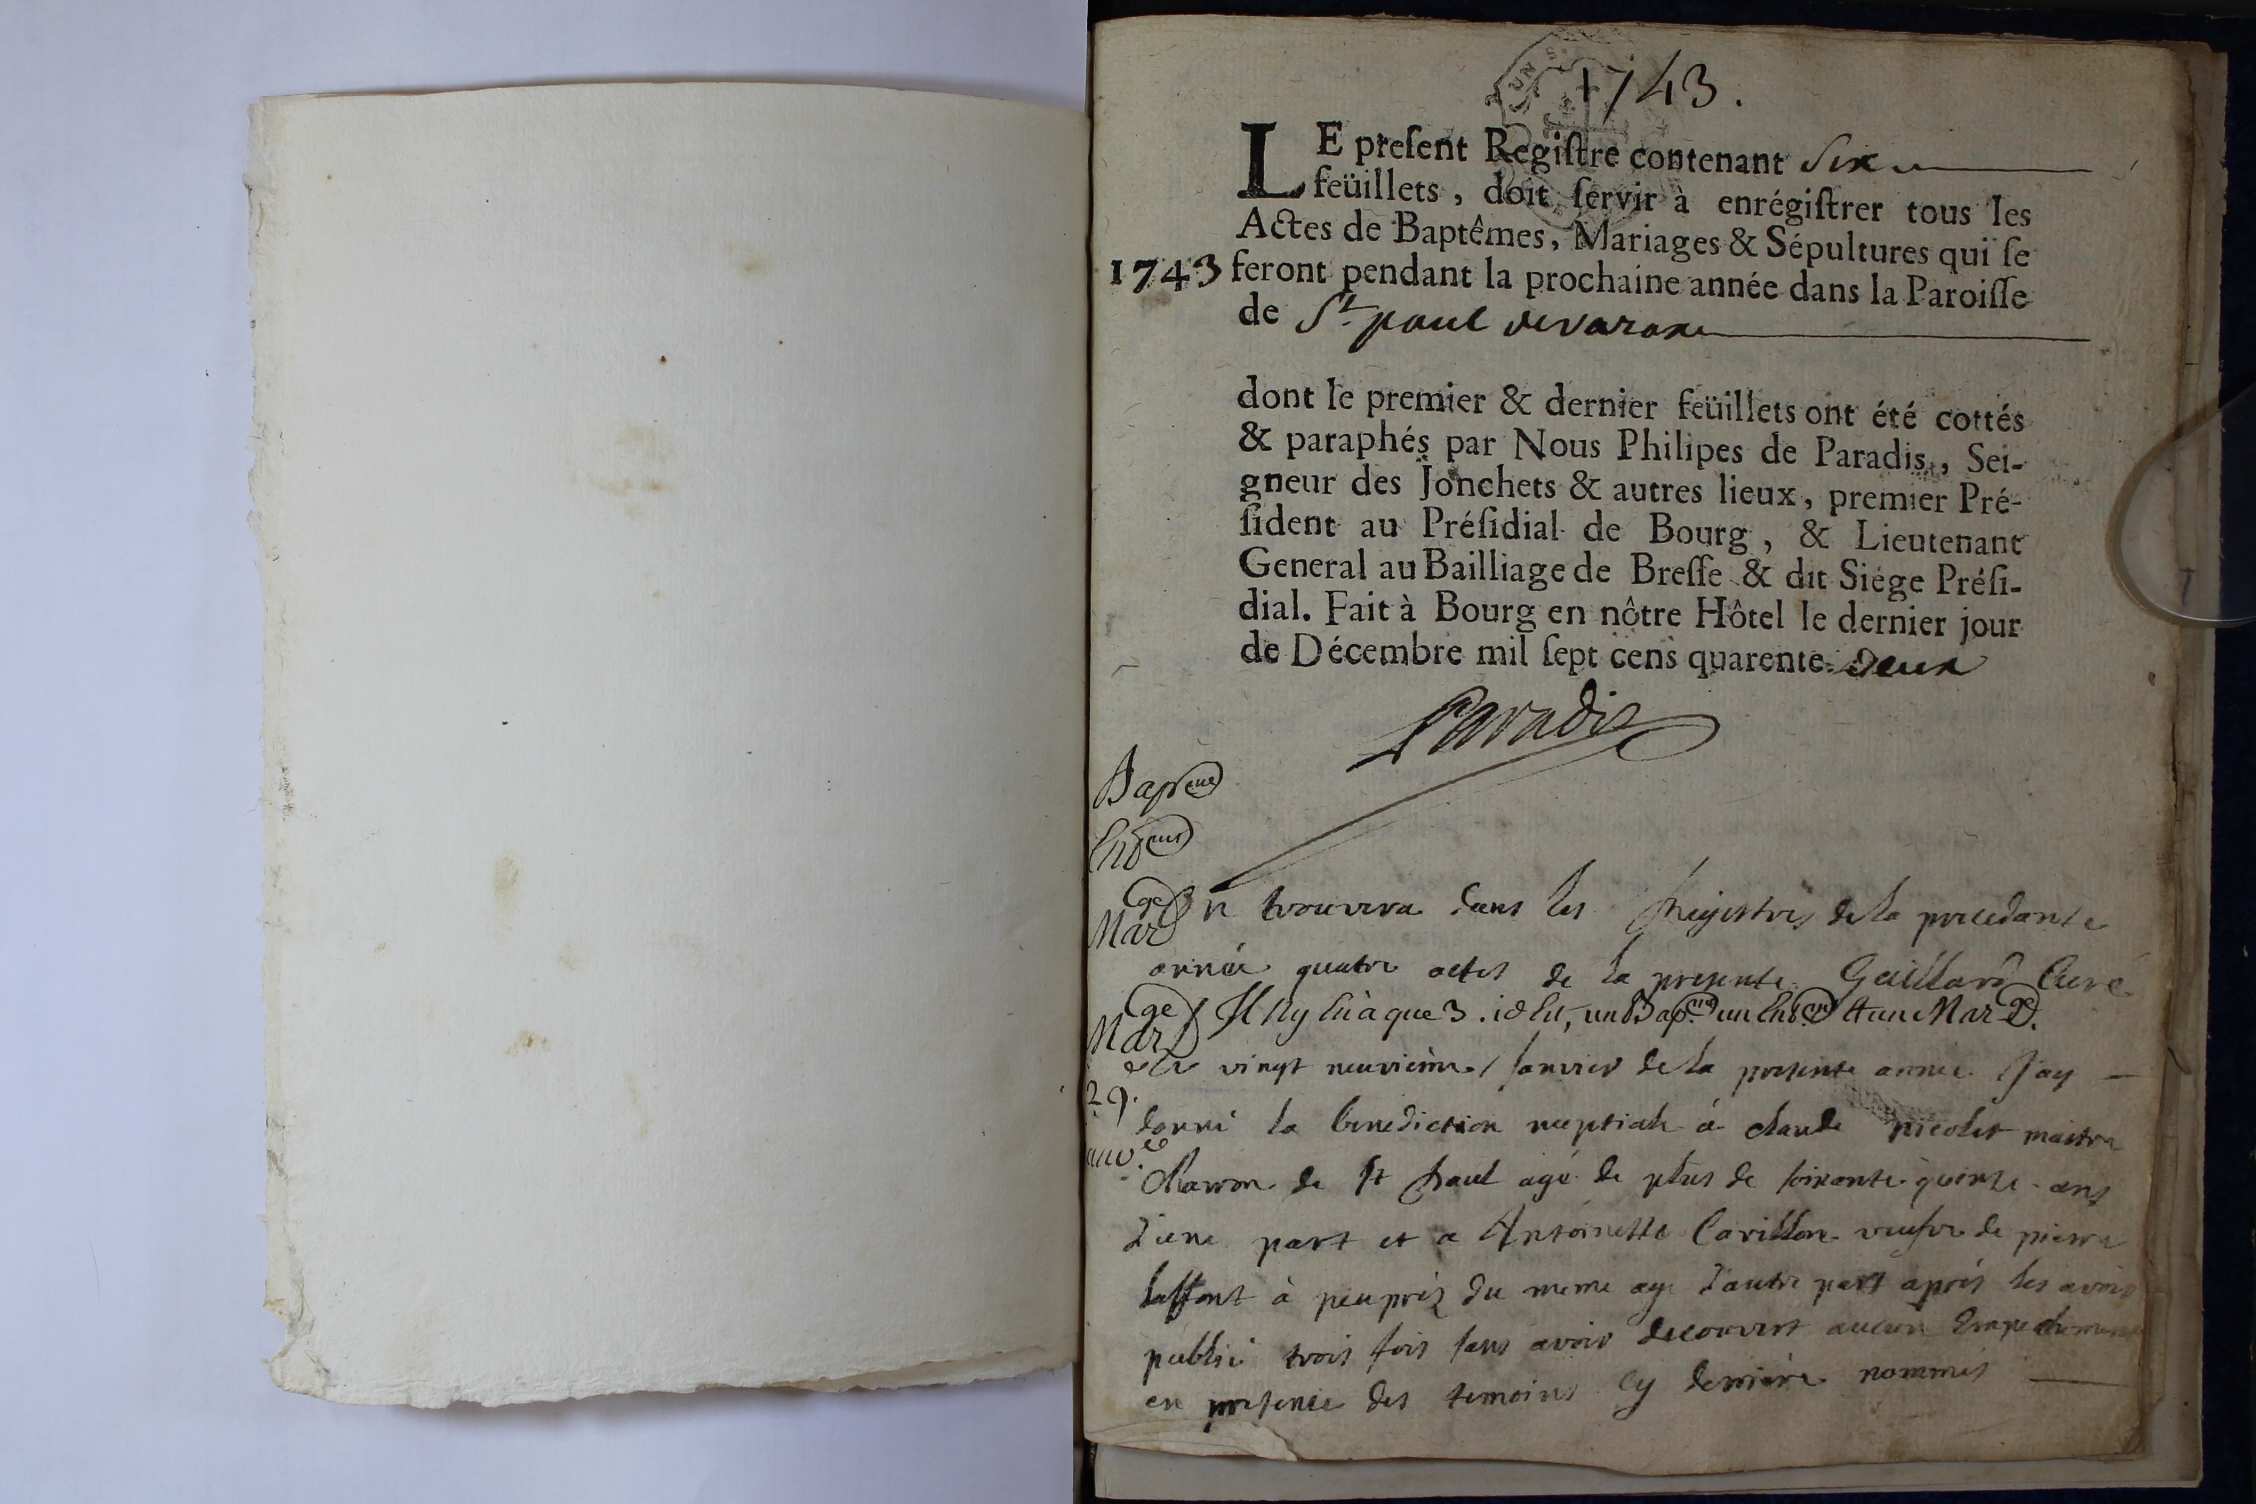 1743.
LE preſent Regiſtre contenant Six
feüillets, doit ſervir à enrégiſtrer tous les
Actes de Baptêmes, Mariages & Sépultures qui ſe
1743 feront pendant la prochaine année dans la Paroiſſe
de St. paul devarax
dont le premier & dernier feüillets ont été cottés
& paraphés par Nous Philipes de Paradis, Sei-
gneur des Jonchets & autres lieux, premier Pré-
ſident au Préſidial de Bourg, & Lieutenant
General au Bailliage de Breſſe & dit Siége Préſi-
dial. Fait à Bourg en nôtre Hôtel le dernier jour
de Décembre mil ſept cens quarente-deux
Paradis
Bapeme
On trouvera dans les Registres de la precedante
Marge
année quatre actes de la presente. Gaillard Curé
Il ny en à que 3. un un et un Marge.
Marge
Le vingt neuvieme janvier de la presente année j'ay
29.
donné la benediction nuptiale á claude nicolet maitre
Charron de St paul agé de plus de soixante quinze ans
d'une part et a Antoinette Carillon veufve de pierre
laffont à peu préz du meme age d'autre part aprés les avoir
publié trois fois sans avoir decouvert aucun Empechement
en presence des temoins cy derriére nommés